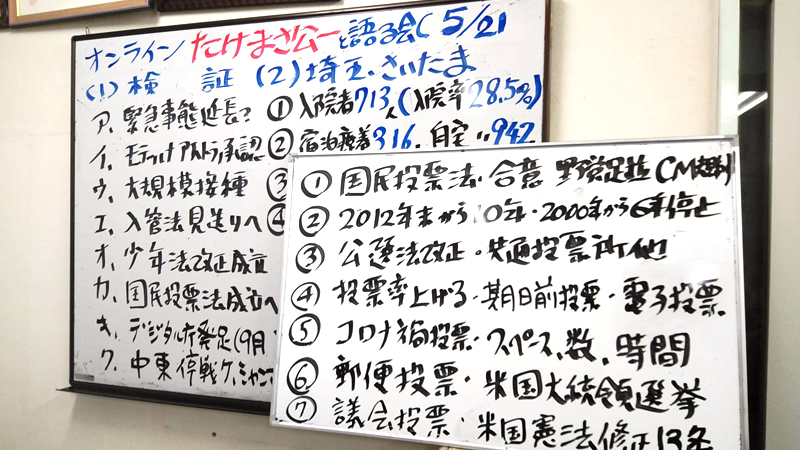 オンライン たけまさ公一と語る会(5/21
(1) 検 証 (2) 埼玉・さいたま
ア、緊急事態延長?
イ、モデルナ アストラ承認
ウ、大規模接種
エ、入管法見送りへ
オ、少年法改正成立
カ、国民投票法成立へ
キ、デジタル庁発足(9月
ク、中東停戦ケ、ミャンマ
① 入院者713人(入院率28.5%)
② 宿泊療養316、自宅〃942
③
④
① 国民投票法・合意 野党足並 CM規制
② 2012年末から10年・2000年から6年停止
③ 公選法改正・共通投票所他
④ 投票率上げる・期日前投票・電子投票
⑤ コロナ禍投票・スペース、数、時間
⑥ 郵便投票・米国大統領選挙
⑦ 議会投票・米国憲法修正13条